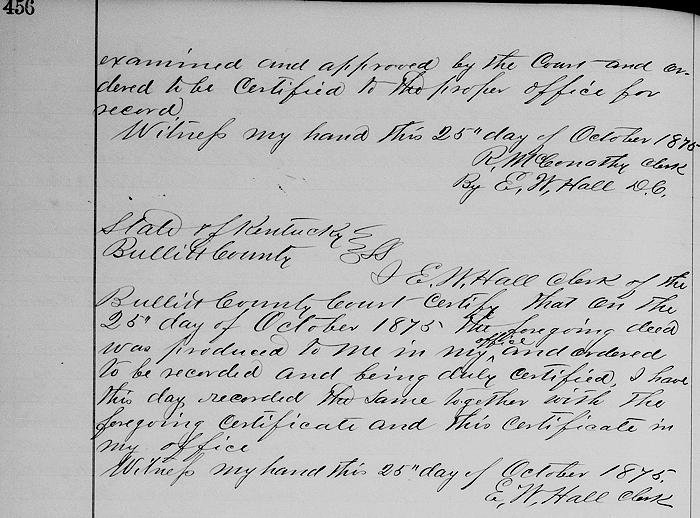 456
examined and approved by the Court and or-
dered to be Certified to the proper office for
record.
Witness my hand this 25" day of October 1875
R. McConathy Clerk
By E. W. Hall D.C.
State of Kentucky
Bullitt County SS
I E. W. Hall Clerk of the
Bullitt County Court Certify that on the
25" day of October 1875 the foregoing deed
was produced to me in my office and ordered
to be recorded and being duly certified, I have
this day recorded the same together with the
foregoing Certificate and this Certificate in
my office
Witness my hand this 25" day of October 1875.
E. W. Hall Clerk